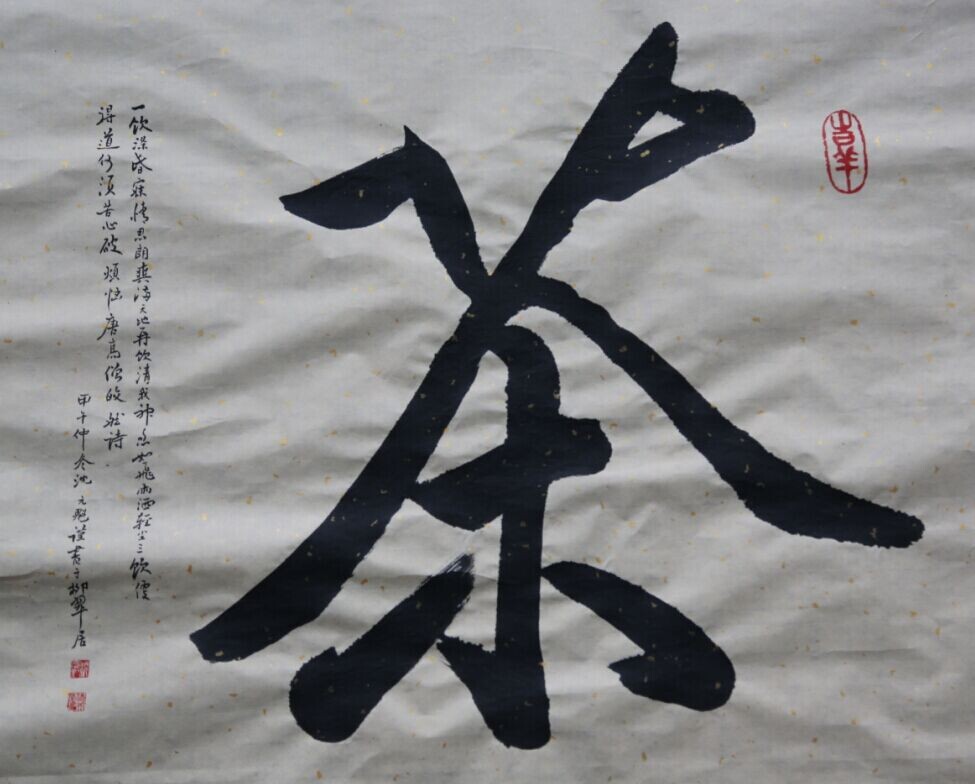 吉羊
茶
一饮涤昏寐情思朗爽满天地再饮清我神忽如飛雨洒輕尘三饮便
得道何须苦心破烦恼唐高僧皎然詩
甲午仲冬沈元魁谨書于柳翠居